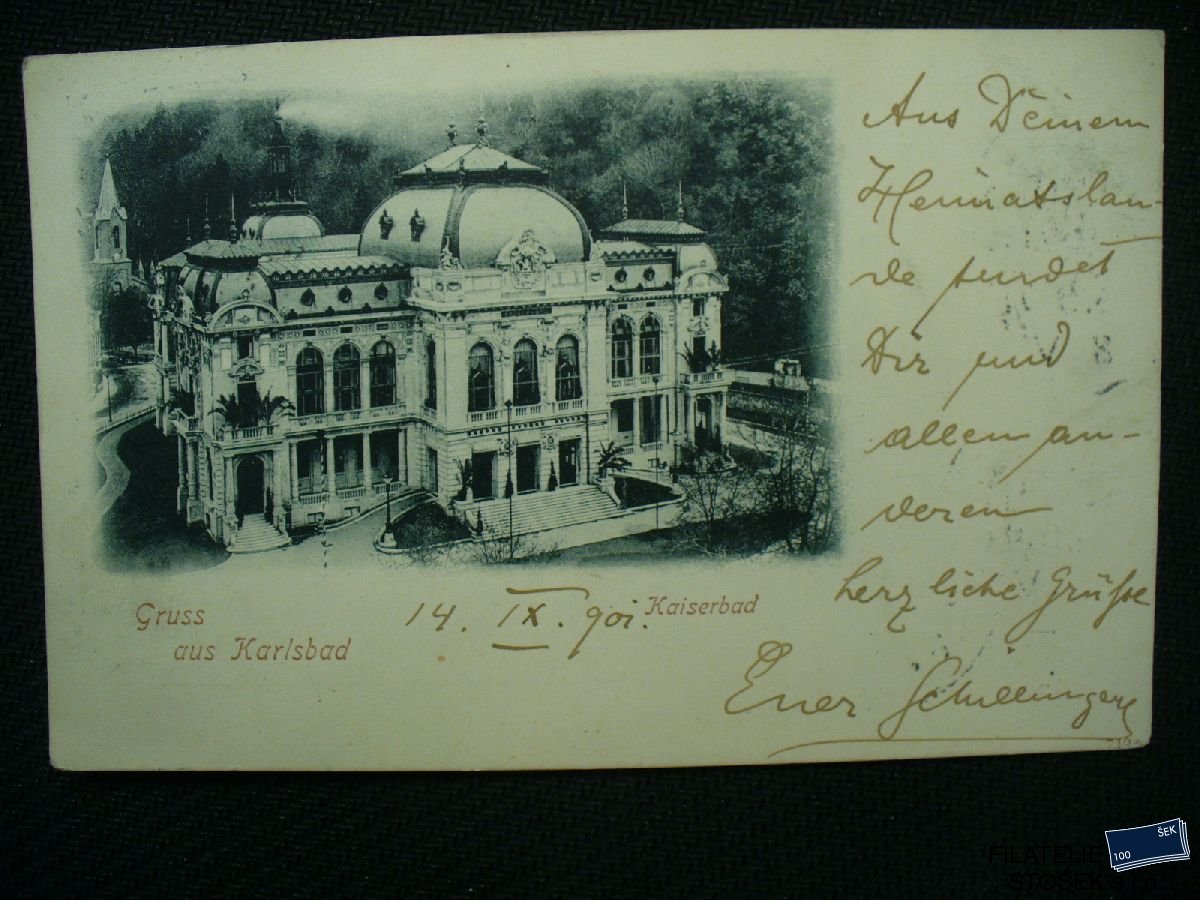 Aus Deinem
Heimatslan-
de sendet
Dir und
allen an-
deren
herzliche Grüße
Euer Schillinger
Gruss
aus Karlsbad
14. IX. 901.
Kaiserbad
ŠEK
100
FILATELIE
STOSEK